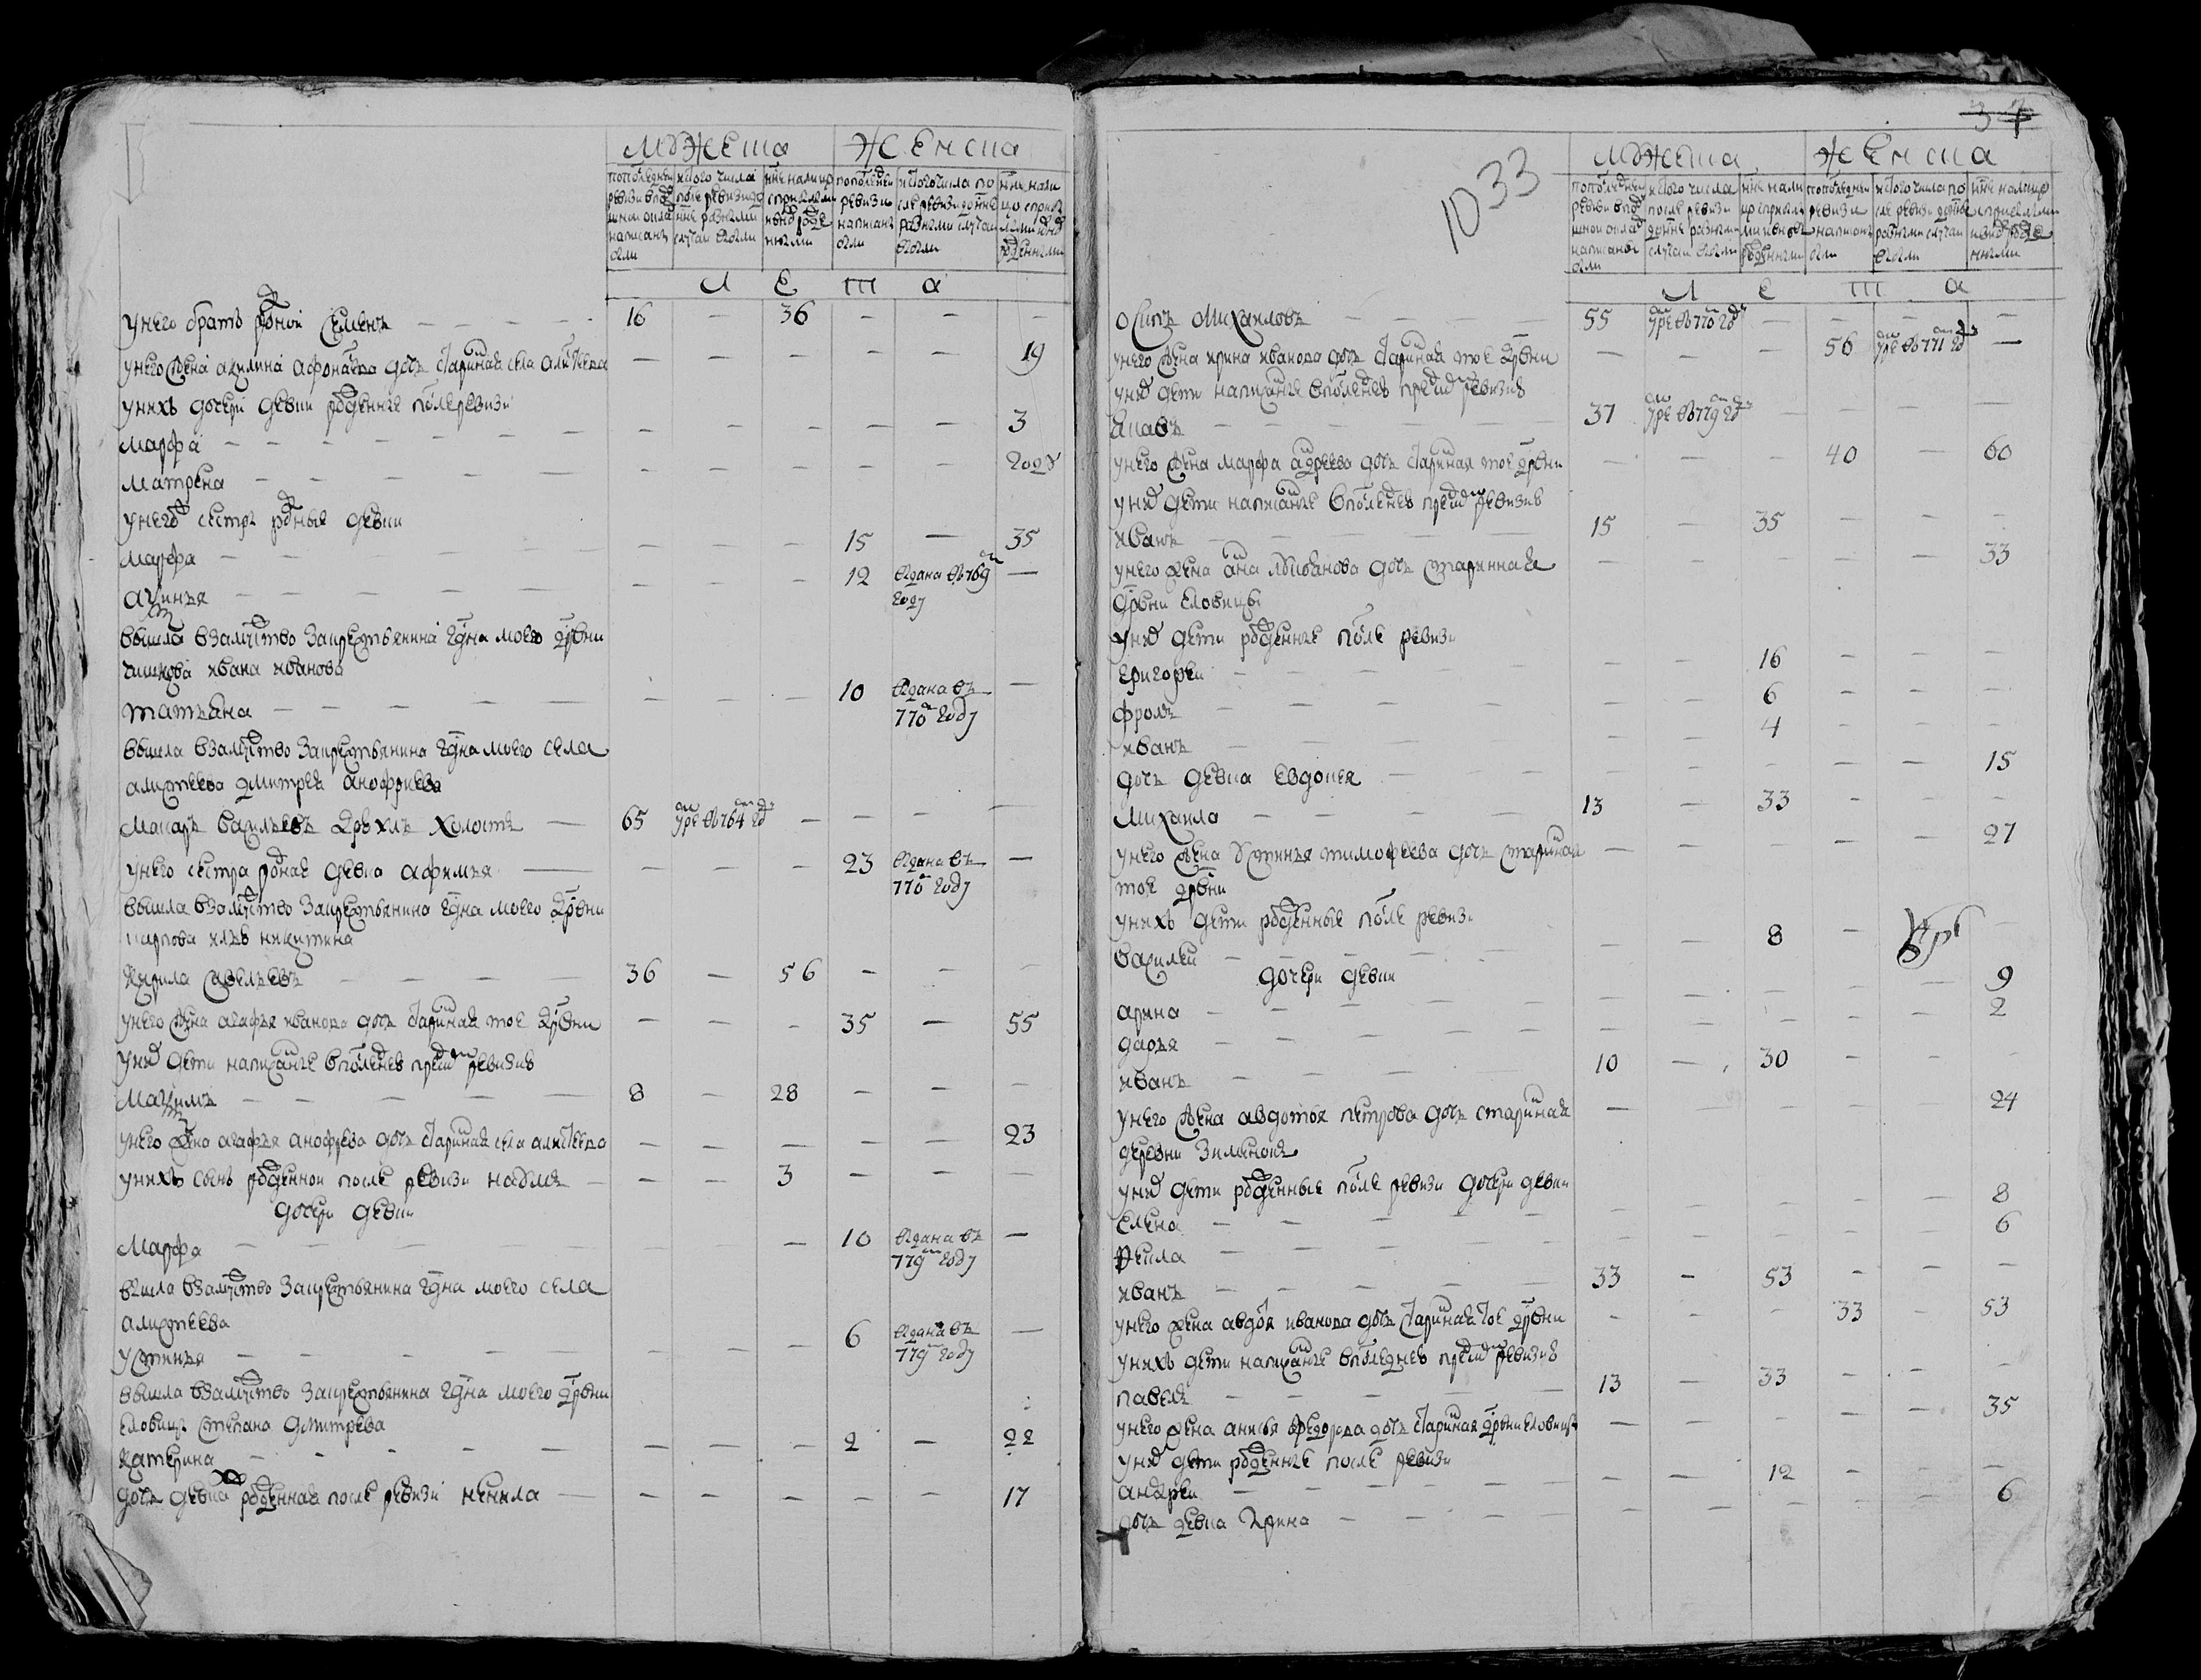 мужеска женска
по последней ревизи в подушной оклад написаны были
ис того числа после ревизи до ныне разными случаи выбыли
ныне на лицо с прибылыми и вновь рожденными
по последней ревизи написаны были
ис того числа после ревизи до ныне разными случаи выбыли
ныне на лицо с прибылыми и вновь рожденными
л е т а
у него братъ родной семенъ — 16 — 36 — — —
у него жена акилина афонасева дочь стариная села алистеева — — — — — 19
у нихъ дочери девки рожденые после ревизи
марфа — — — — — — 3
матрена — — — — — — году
у него сестры родные девки
марфа — — — — 15 — 35
аксинья — — — — 12 выдана въ 769 году —
вышла в замужство за крестьянина гдна моего дрвни
чишкова ивана иванова
татьяна — — — — 10 выдана въ 770 году —
вышла в замужство за крестьянина гдна моего села
алистеева дмитрея анофриева
макаръ василевъ дряхлъ холостъ — 65 умре въ 764 годъ — — — —
у него сестра родная девка афимья — — — — 23 выдана въ 770 году —
вышла в замужство за крестьянина гдна моего дрвни
карпова илью никитина
кирила савельевъ — 36 — 56 — — —
у него жена агафья иванова дочь стариная тое дрвни — — — 35 — 55
у них дети написаные в последнею пред сим ревизию
максимъ — 8 — 28 — — —
у него жена агафья анофрева дочь стариная села алистеева — — — — — 23
у нихъ сынъ рожденной после ревизи наумъ — — — 3 — — —
дочери девки
марфа — — — — 10 выдана въ 779 году —
вышла в замужство за крестьянина гдна моего села
алистеева
устинья — — — — 6 выдана въ 779 году —
вышла в замужство за крестьянина гдна моего дрвни
еловицъ степана дмитрева
катерина — — — — 2 — 22
дочь девка рожденная после ревизи ненила — — — — — — 17
37
1033
мужеска женска
по последней ревизи в подушной оклад написаны были
ис того числа после ревизи до ныне разными случаи выбыли
ныне на лицо с прибылыми и вновь рожденными
по последней ревизи написаны были
ис того числа после ревизи до ныне разными случаи выбыли
ныне на лицо с прибылыми и вновь рожденными
л е т а
осипъ михаиловъ — 55 умре въ 770 годъ — — — —
у него жена ирина иванова дочь стариная тое дрвни — — — 56 умре въ 771 годъ —
у них дети написаные в последнею пред сим ревизию
37 умре въ 779 годъ — — — —
у него жена марфа андреева дочь стариная тое дрвни — — — 40 — 60
у них дети написаные в последнею пред сим ревизию
иванъ — 15 — 35 — — —
у него жена анна дочь старинная — — — — — 33
дрвни еловицы
у них дети рожденые после ревизи
григореи — — — 16 — — —
фролъ — — — 6 — — —
иванъ — — — 4 — — —
дочь девка евдокея — — — — — — 15
михаила — 13 — 33 — — —
у него жена устинья тимофеева дочь стариная — — — — — 27
тое дрвни
у нихъ дети рожденные после ревизи
василеи — — — 8 — —
дочери девки
арина — — — — — — 9
дарья — — — — — — 2
иванъ — 10 — 30 — — —
у него жена авдотья петрова дочь стариная — — — — — 24
деревни
у них дети рожденные после ревизи дочери девки
елена — — — — — — 8
фекла — — — — — — 6
иванъ — 33 — 53 — — —
у него жена авдотья иванова дочь стариная тое дрвни — — — 33 — 53
у нихъ дети написаные в последнею пред сим ревизию
павелъ — 13 — 33 — — —
у него жена анисья федорова дочь стариная дрвни еловицъ — — — — — 35
у них дети рожденые после ревизи
андреи — — — 12 — — —
дочь девка ирина — — — — — — 6